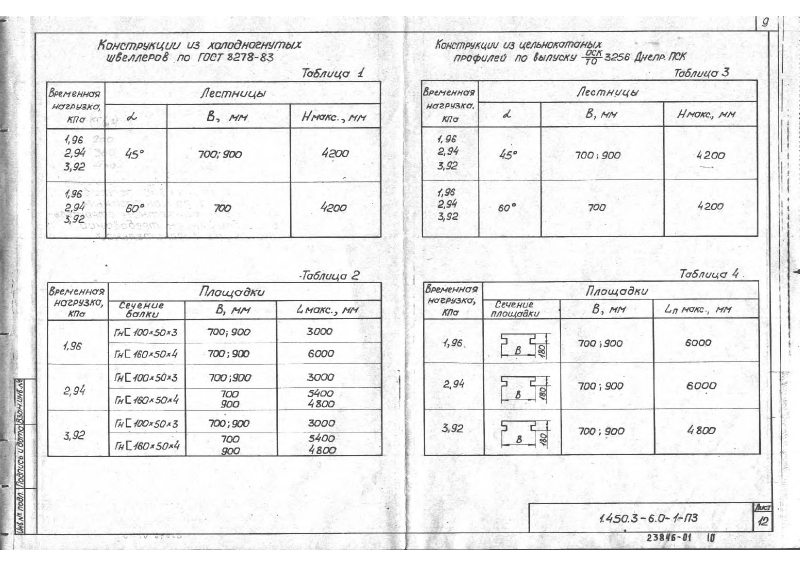 9
Конструкции из холодногнутых
швеллеров по ГОСТ 8278-83
Таблица 1
Временная нагрузка, кПа | Лестницы
α | В, мм | Нмакс., мм
1,96 2,94 3,92 | 45° | 700; 900 | 4200
1,96 2,94 3,92 | 60° | 700 | 4200
Таблица 2
Временная нагрузка, кПа | Площадки
Сечение балки | В, мм | Lмакс., мм
1,96 | Гн[100×50×3 | 700; 900 | 3000
Гн[160×50×4 | 700; 900 | 6000
2,94 | Гн[100×50×3 | 700; 900 | 3000
Гн[160×50×4 | 700 | 5400
900 | 4800
3,92 | Гн[100×50×3 | 700; 900 | 3000
Гн[160×50×4 | 700 | 5400
900 | 4800
Конструкции из цельнокатаных
профилей по выпуску ОСК/ТО 3256 Днепр. ПСК
Таблица 3
Временная нагрузка, кПа | Лестницы
α | В, мм | Нмакс., мм
1,96 2,94 3,92 | 45° | 700; 900 | 4200
1,96 2,94 3,92 | 60° | 700 | 4200
Таблица 4
Временная нагрузка, кПа | Площадки
Сечение площадки | В, мм | Lп макс., мм
1,96 | В 180 | 700; 900 | 6000
2,94 | В 180 | 700; 900 | 6000
3,92 | В 160 | 700; 900 | 4800
1.450.3-6.0-1-ПЗ
Лист
12
23846-01 10
Инв.№ подл. Подпись и дата Взам.инв.№